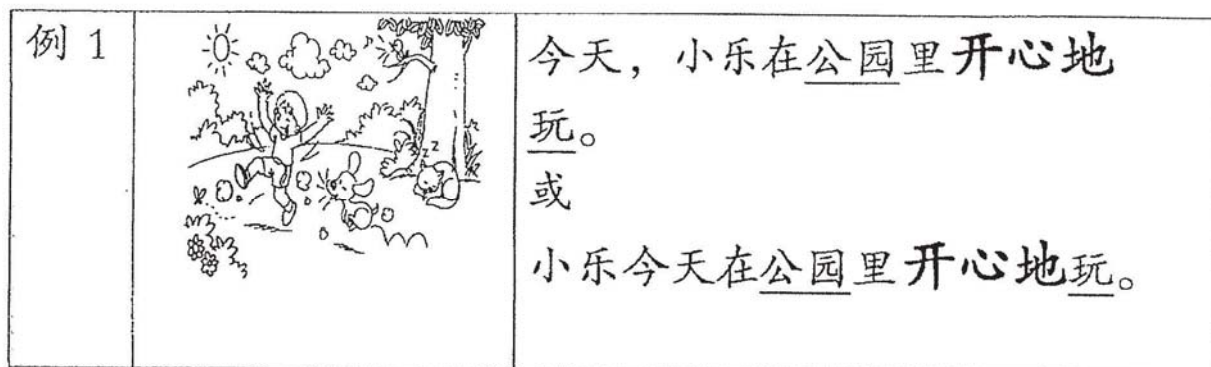 例 1
今天，小乐在公园里开心地
玩。
或
小乐今天在公园里开心地玩。
z z